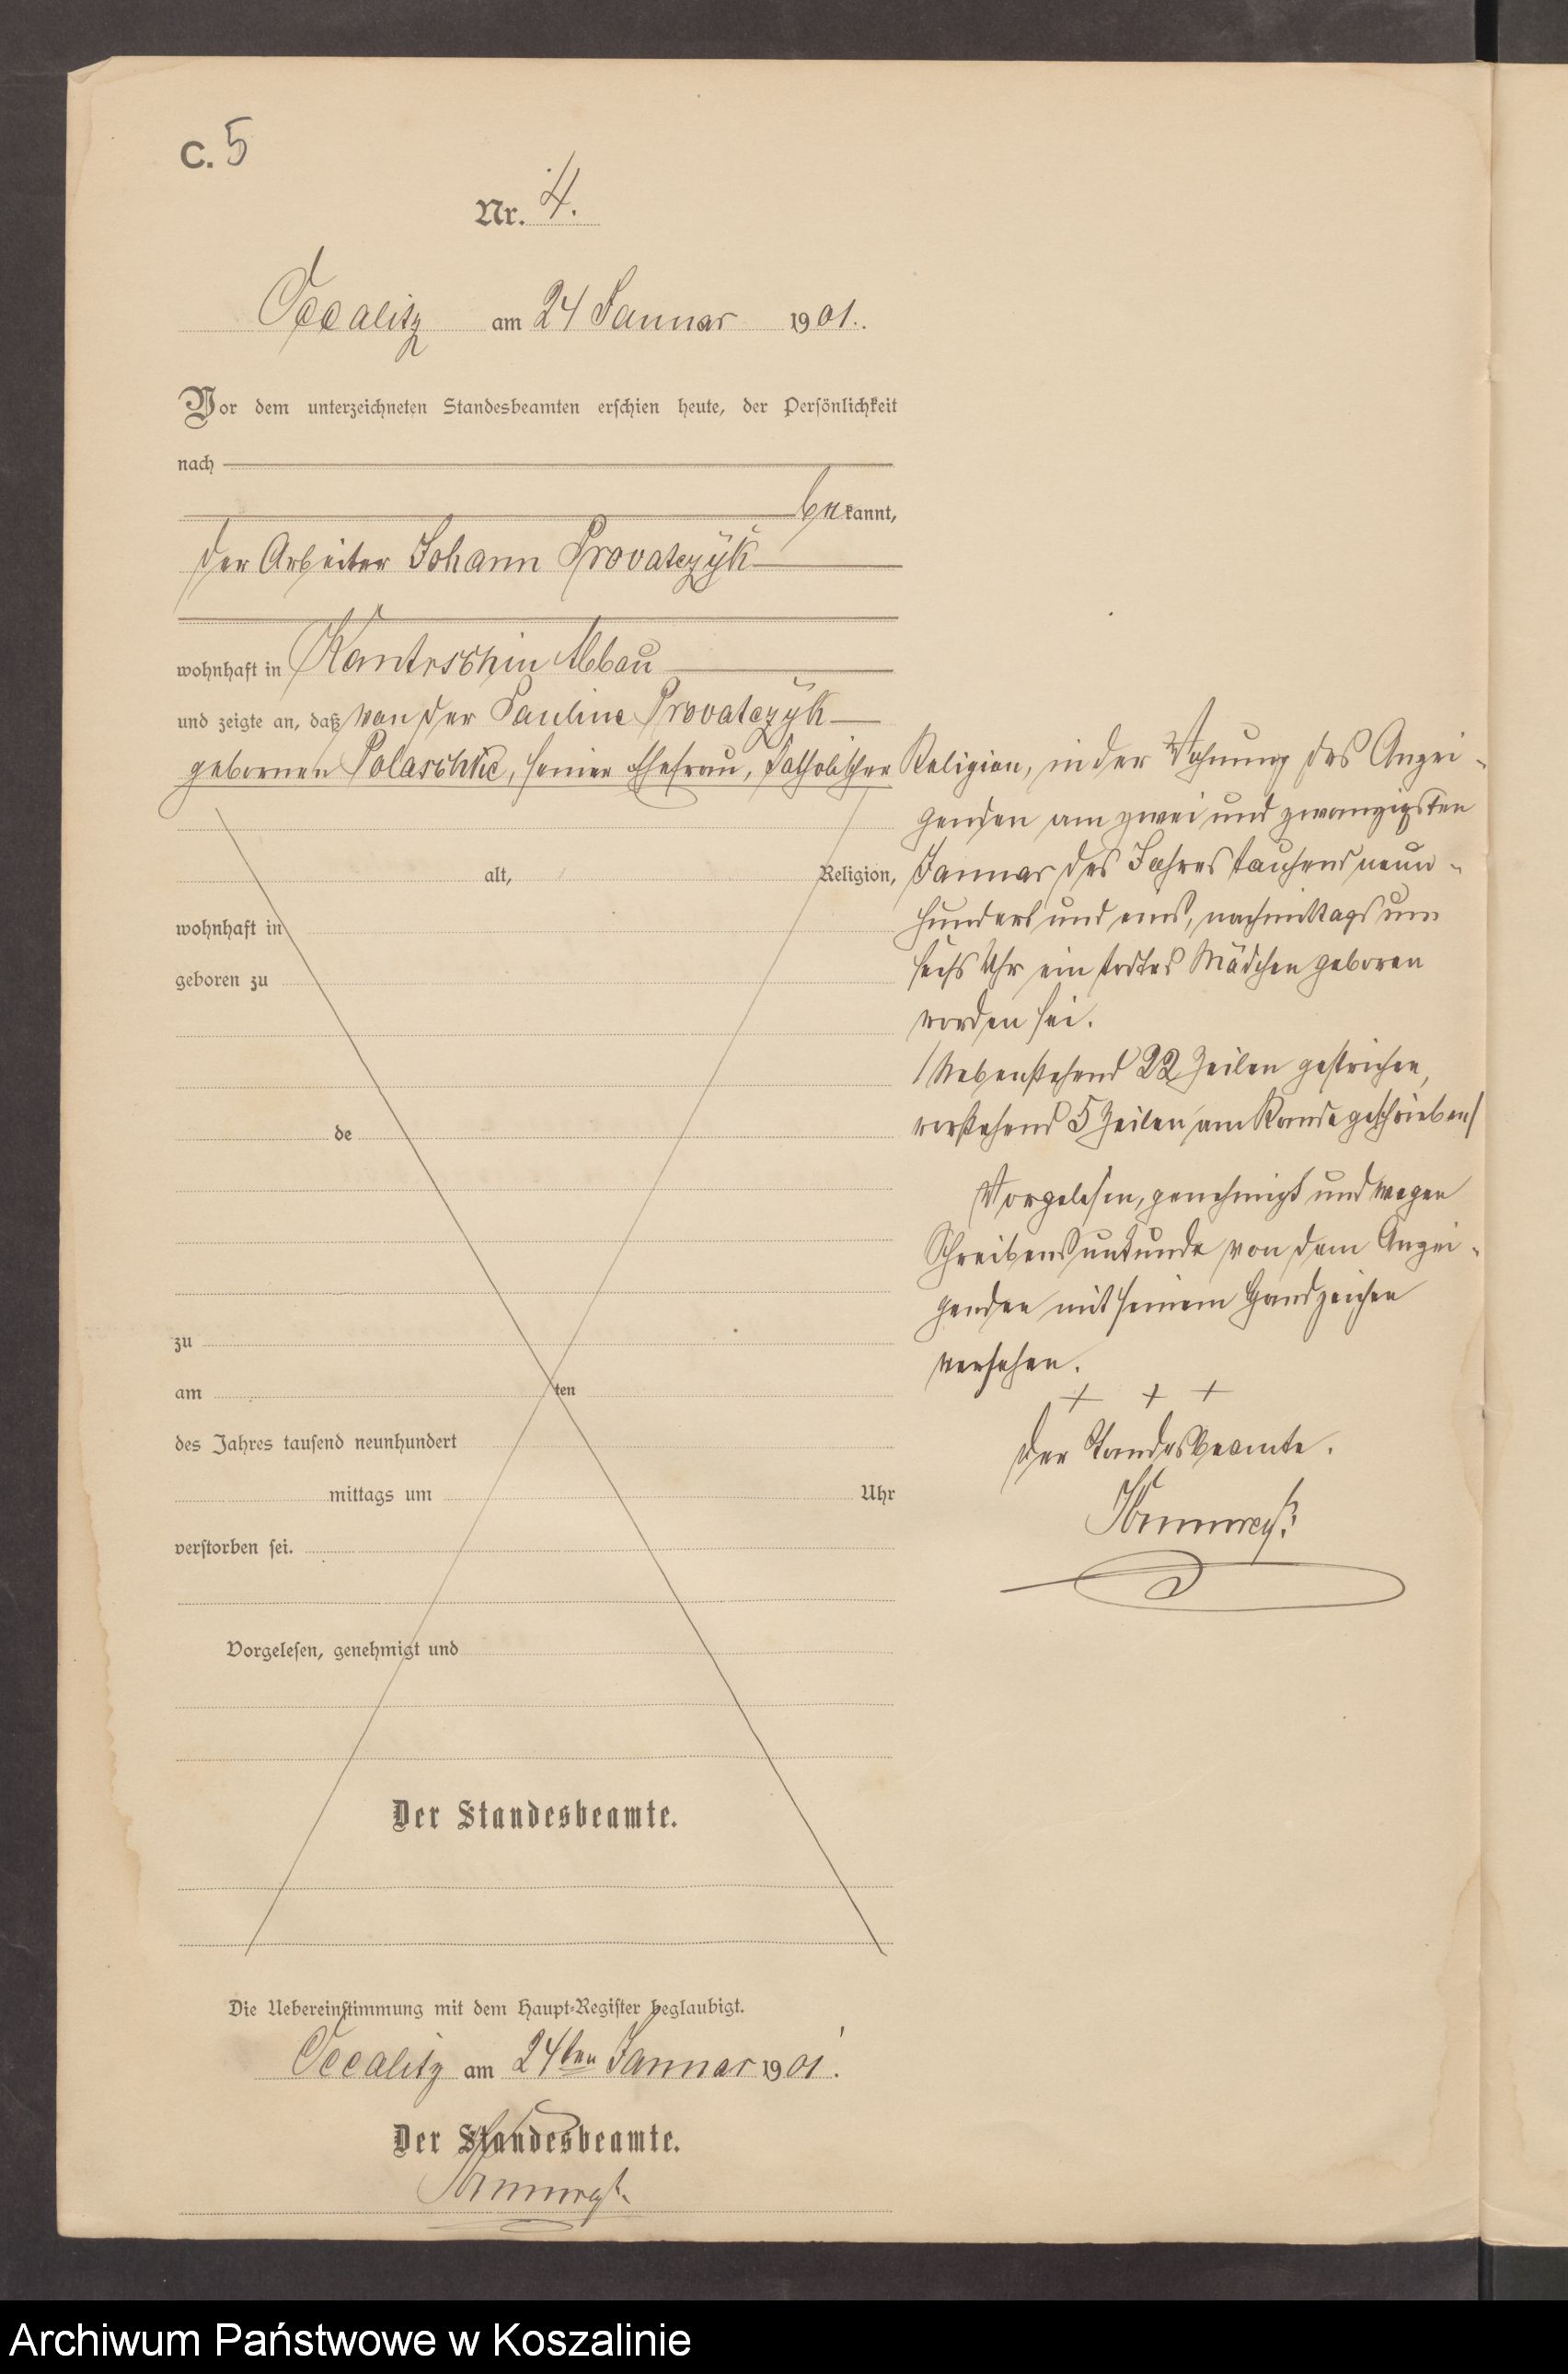 C. 5
Nr. 4.
Occalitz am 24 Januar 1901.
Vor dem unterzeichneten Standesbeamten erschien heute, der Persönlichkeit
nach
bekannt,
der Arbeiter Johann Provatczÿk
wohnhaft in Kantrschin Abbau
und zeigte an, daß von der Pauline Provatczÿk
gebornen Polaschke, seiner Ehefrau, katholischer
alt, Religion,
wohnhaft in
geboren zu
de
zu
am ten
des Jahres tausend neunhundert
mittags um Uhr
verstorben sei.
Vorgelesen, genehmigt und
Der Standesbeamte.
Religion, in der Wohnung des Anzei-
genden am zwei und zwanzigsten
Januar des Jahres tausend neun-
hundert und eins, nachmittags um
sechs Uhr ein todtes Mädchen geboren
worden sei.
/Nebenstehend 22 Zeilen gestrichen,
vorstehend 5 Zeilen am Rande geschrieben/
Vorgelesen, genehmigt und wegen
Schreibensunkunde von dem Anzei-
genden mit seinem Handzeichen
versehen.
+ + +
Der Standesbeamte.
Die Uebereinstimmung mit dem Haupt-Register beglaubigt.
Occalitz am 24ten Januar 1901.
Der Standesbeamte.
Archiwum Państwowe w Koszalinie